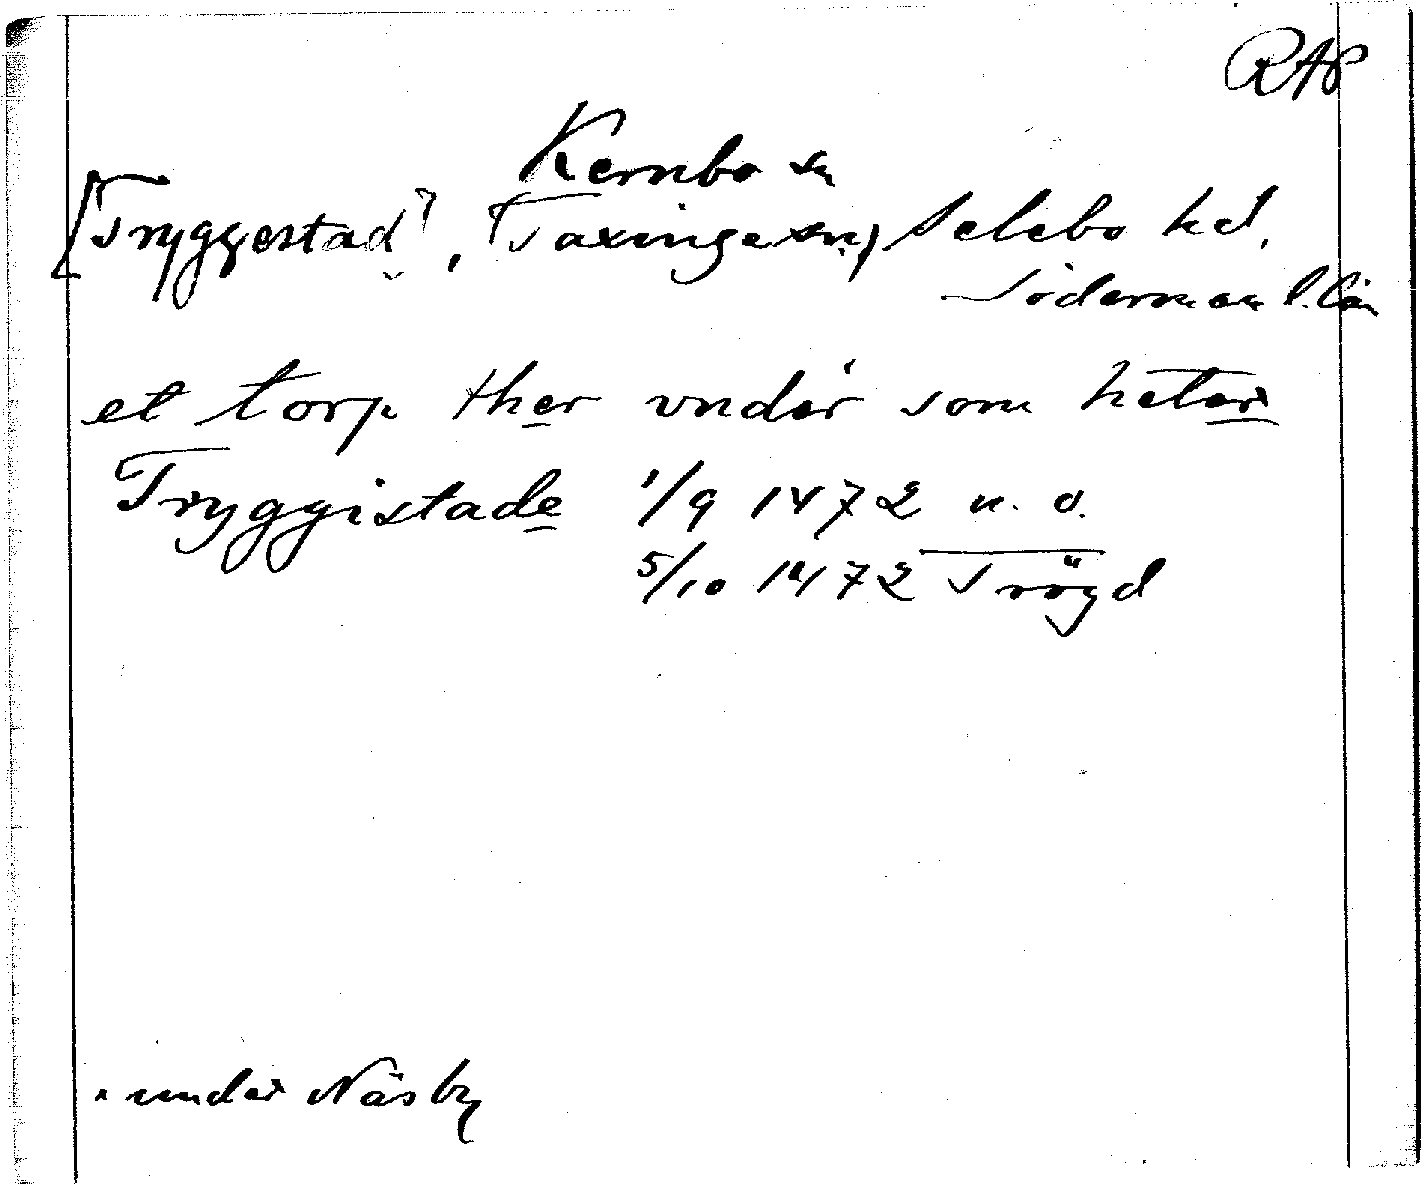 RAP
Kernbo sn
[Tryggestad?, (Taxinge sn) Selebo hd,
Söderman l. län
et torp ther vnder som heter
Tryggistade 1/9 1472 n. o.
5/10 1472 Trögd
. under Näsby